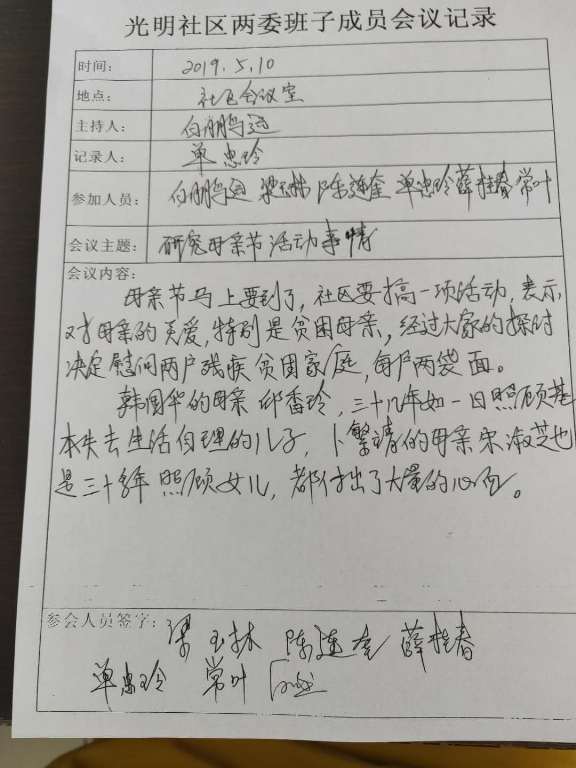 光明社区两委班子成员会议记录
时间： 2019.5.10
地点： 社区会议室
主持人： 白鹏
记录人： 单忠玲
参加人员： 白鹏 梁玉林 陈连奎 单忠玲 薛桂春 常叶
会议主题： 研究母亲节活动事情
会议内容：
母亲节马上要到了，社区要搞一项活动，表示
对母亲的关爱，特别是贫困母亲，经过大家的探讨
决定慰问两户残疾贫困家庭，每户两袋面。
韩国华的母亲邱香玲，三十几年如一日照顾基
本失去生活自理的儿子，卜繁靖的母亲宋淑芝也
是三十多年照顾女儿，都付出了大量的心血。
参会人员签字： 梁玉林 陈连奎 薛桂春
单忠玲 常叶